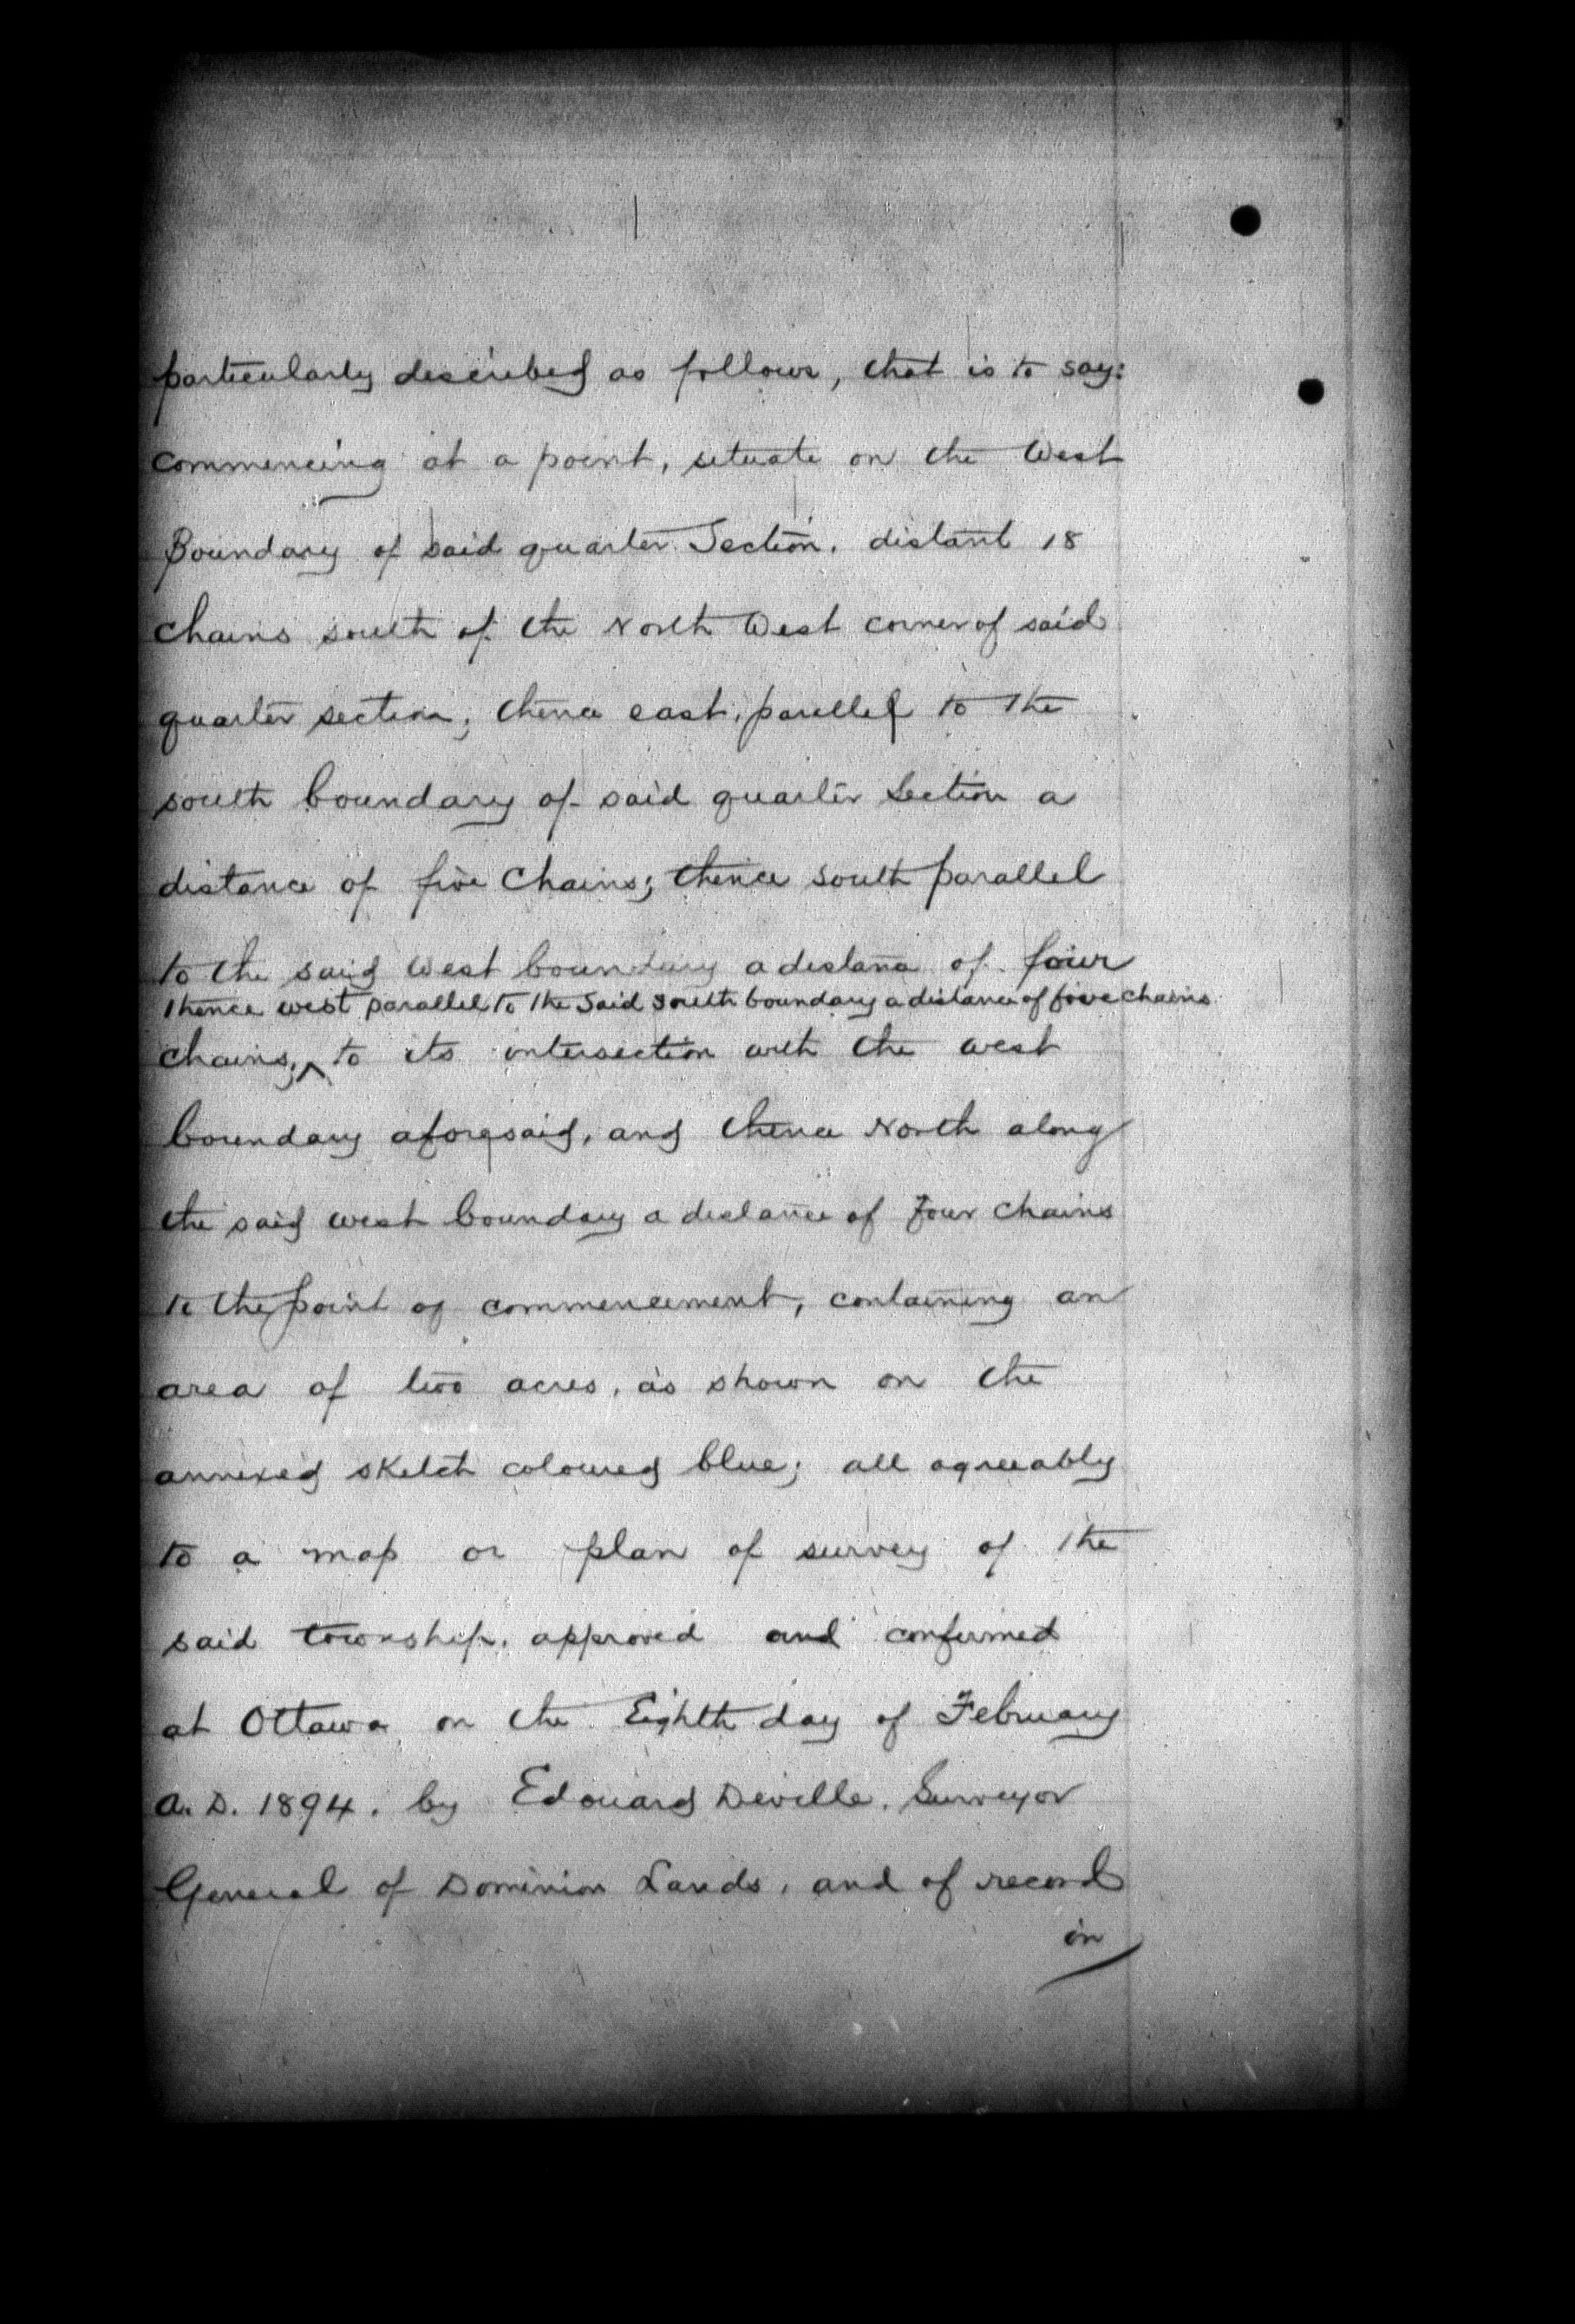 particularly described as follows, that is to say:
commencing at a point, situate on the West
Boundary of said quarter Section. distant 18
chains south of the North West corner of said
quarter section; thence east, parellel to the
south boundary of said quarter Section a
distance of five Chains; thence south parallel
to the said West boundary a distance of four
thence west parallel to the said south boundary a distance of five chains
chains; ^ to its intersection with the west
boundary aforesaid, and thence North along
the said west boundary a distance of four chains
to the point of commencement, containing an
area of two acres, as shown on the
annexed sketch coloured blue; all agreeably
to a map or plan of survey of the
said township. approved and confirmed
at Ottawa on the Eighth day of February
A. D. 1894. by Edouard Deville. Surveyor
General of Dominion Lands, and of record
in